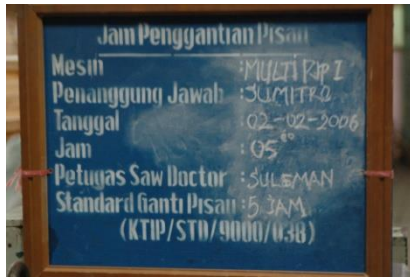 Jam Penggantian Pisau
Mesin :MULTI RIP I
Penanggung Jawab :SUMITRO
Tanggal :02-02-2006
Jam :05
Petugas Saw Doctor :SULEMAN
Standard Ganti Pisau :5 JAM
(KTIP/STD/9000/038)